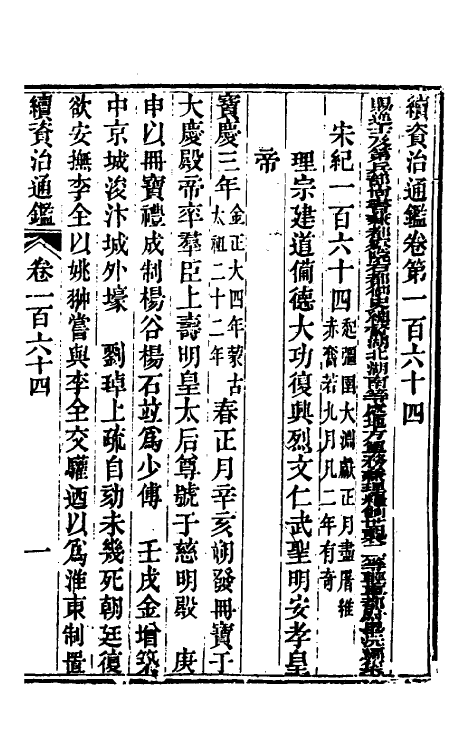 續資治通鑑卷第一百六十四
宋紀一百六十四起彊圉大淵獻正月盡屠維
赤奮若九月凡二年有奇
理宗建道備德大功復興烈文仁武聖明安孝皇
帝
寶慶三年金正大四年蒙古
太祖二十二年春正月辛亥朔發冊寶于
大慶殿帝率羣臣上壽明皇太后尊號于慈明殿 庚
申以冊寶禮成制楊谷楊石竝為少傅 壬戌金增築
中京城浚汴城外壕 劉琸上疏自劾未幾死朝廷復
欲安撫李全以姚翀嘗與李全交驩迺以為淮東制置
續資治通鑑 卷一百六十四 一